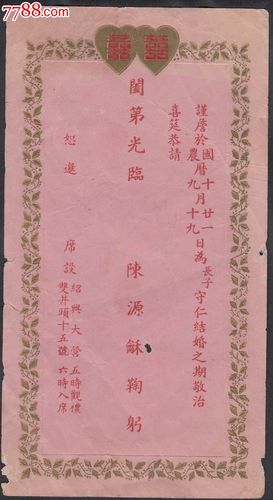 7788.com
囍 囍
謹詹於國農曆十九月廿一十九日為長子守仁結婚之期敬治
喜筵恭請
闔第光臨
陳源龢鞠躬
恕邀
席設
紹興大營五時觀禮
雙井頭十五號六時入席